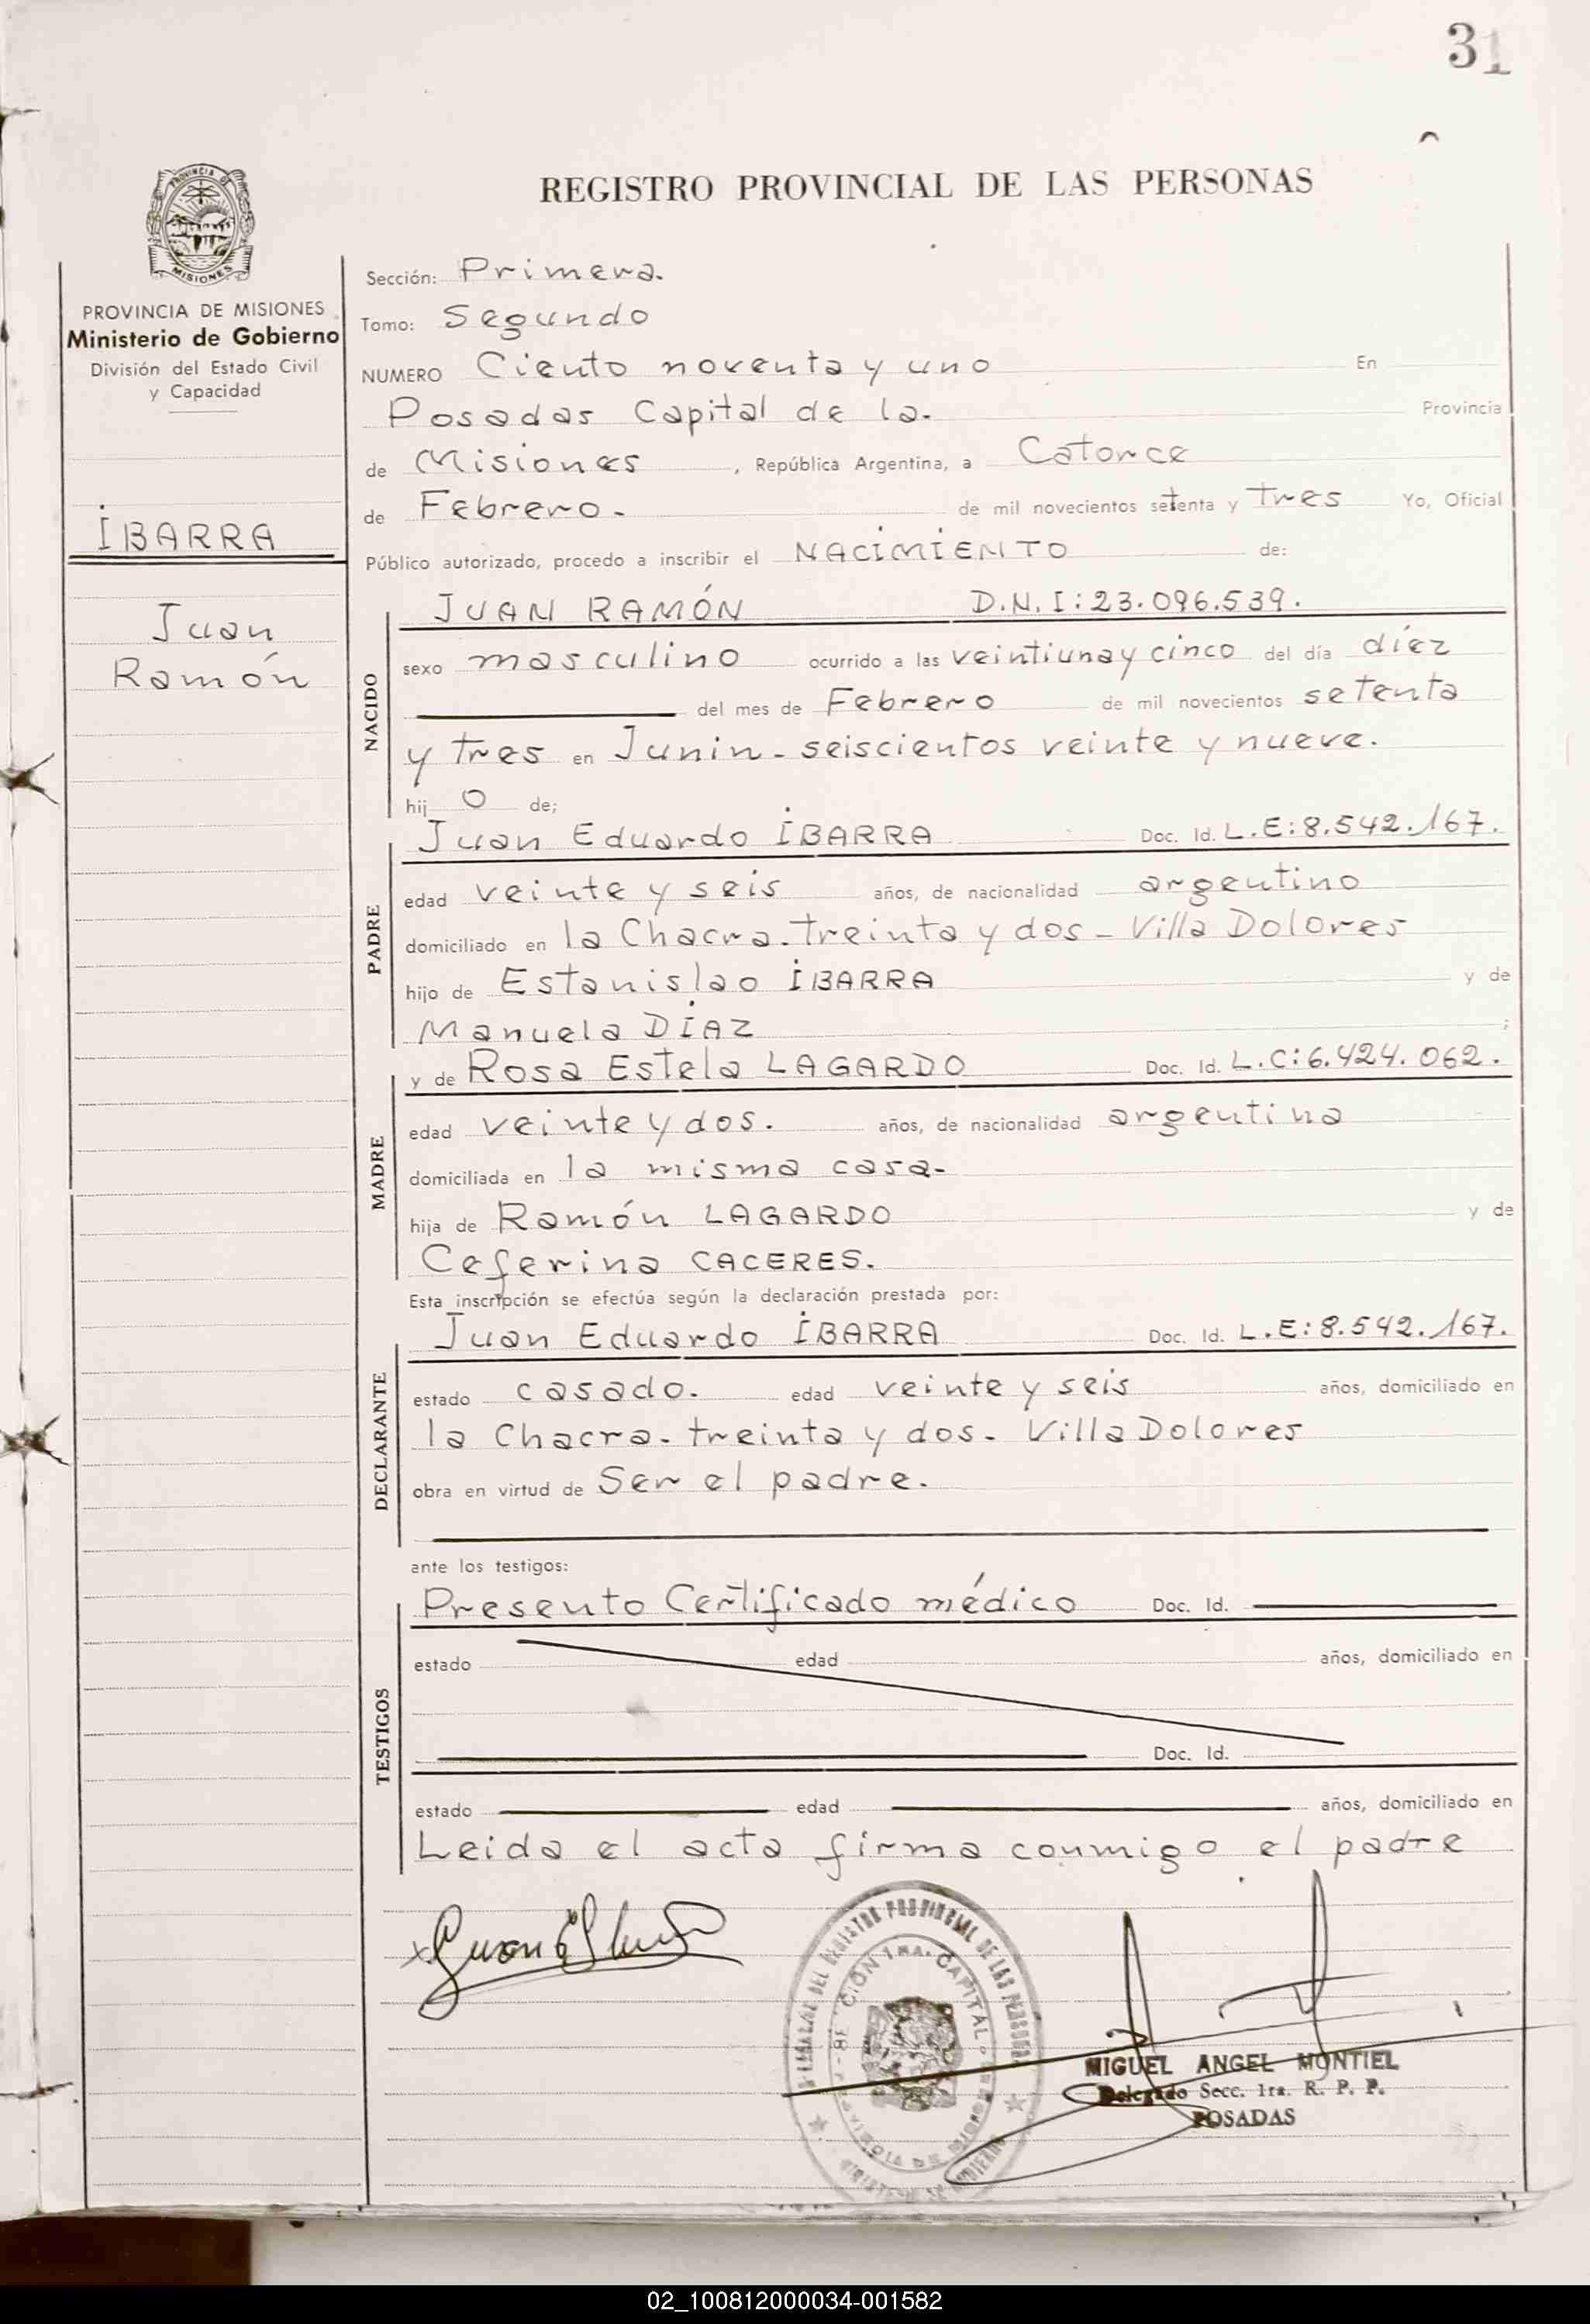 31
REGISTRO PROVINCIAL DE LAS PERSONAS
PROVINCIA DE MISIONES
Ministerio de Gobierno
División del Estado Civil
y Capacidad
IBARRA
Juan
Ramón
Sección: Primera.
Tomo: Segundo
NUMERO Ciento noventa y uno En
Posadas Capital de la. Provincia
de Misiones, República Argentina, a Catorce
de Febrero. de mil novecientos setenta y tres Yo, Oficial
Público autorizado, procedo a inscribir el NACIMIENTO de:
NACIDO
JUAN RAMÓN D.N.I: 23.096.539.
sexo masculino ocurrido a las veintiuna y cinco del día díez
del mes de Febrero de mil novecientos setenta
y tres en Junin - seiscientos veinte y nueve.
hij o de;
PADRE
Juan Eduardo IBARRA Doc. Id. L.E: 8.542.167.
edad veinte y seis años, de nacionalidad argentino
domiciliado en la Chacra. treinta y dos - Villa Dolores
hijo de Estanislao IBARRA y de
Manuela DIAZ ;
MADRE
y de Rosa Estela LAGARDO Doc. Id. L.C: 6.424.062.
edad veinte y dos. años, de nacionalidad argentina
domiciliada en la misma casa-
hija de Ramón LAGARDO y de
Ceferina CACERES.
Esta inscripción se efectúa según la declaración prestada por:
DECLARANTE
Juan Eduardo IBARRA Doc. Id. L.E: 8.542.167.
estado casado. edad veinte y seis años, domiciliado en
la Chacra- treinta y dos- Villa Dolores
obra en virtud de Ser el padre.
ante los testigos:
TESTIGOS
Presento Certificado médico Doc. Id.
estado edad años, domiciliado en
Doc. Id.
estado edad años, domiciliado en
Leida el acta firma conmigo el padre
MIGUEL ANGEL MONTIEL
Delegado Secc. 1ra. R. P. P.
POSADAS
02_100812000034-001582